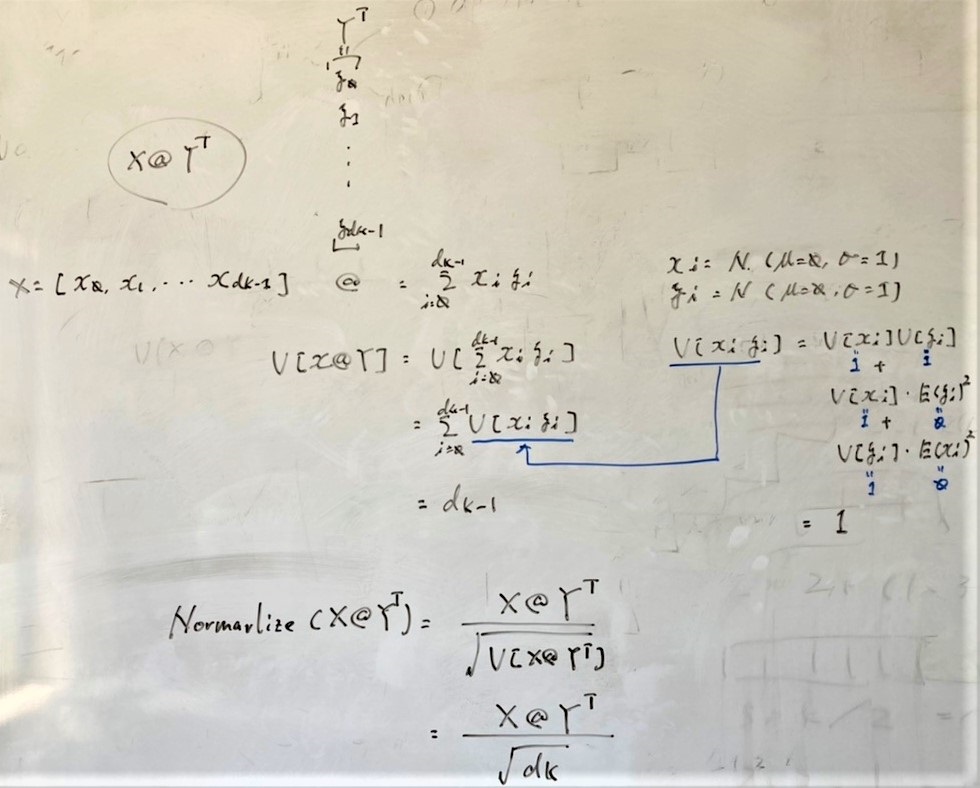 Yᵀ
"
y₀
y₁
⋮
y_dk-1
X@Yᵀ
X = [x₀, x₁, ⋯ x_dk-1] @ = Σ_{i=0}^{dk-1} xᵢ yᵢ
xᵢ = N (μ=0, σ=1)
yᵢ = N (μ=0, σ=1)
V[X@Y] = V[Σ_{i=0}^{dk-1} xᵢ yᵢ]
= Σ_{i=0}^{dk-1} V[xᵢ yᵢ]
= dk-1
V[xᵢ yᵢ] = V[xᵢ]V[yᵢ]
" "
1 + 1
V[xᵢ]·E(yᵢ)²
" "
1 + 0
V[yᵢ]·E(xᵢ)²
" "
1 0
= 1
Normarlize (X@Yᵀ) = X@Yᵀ / √V[X@Yᵀ]
= X@Yᵀ / √dk